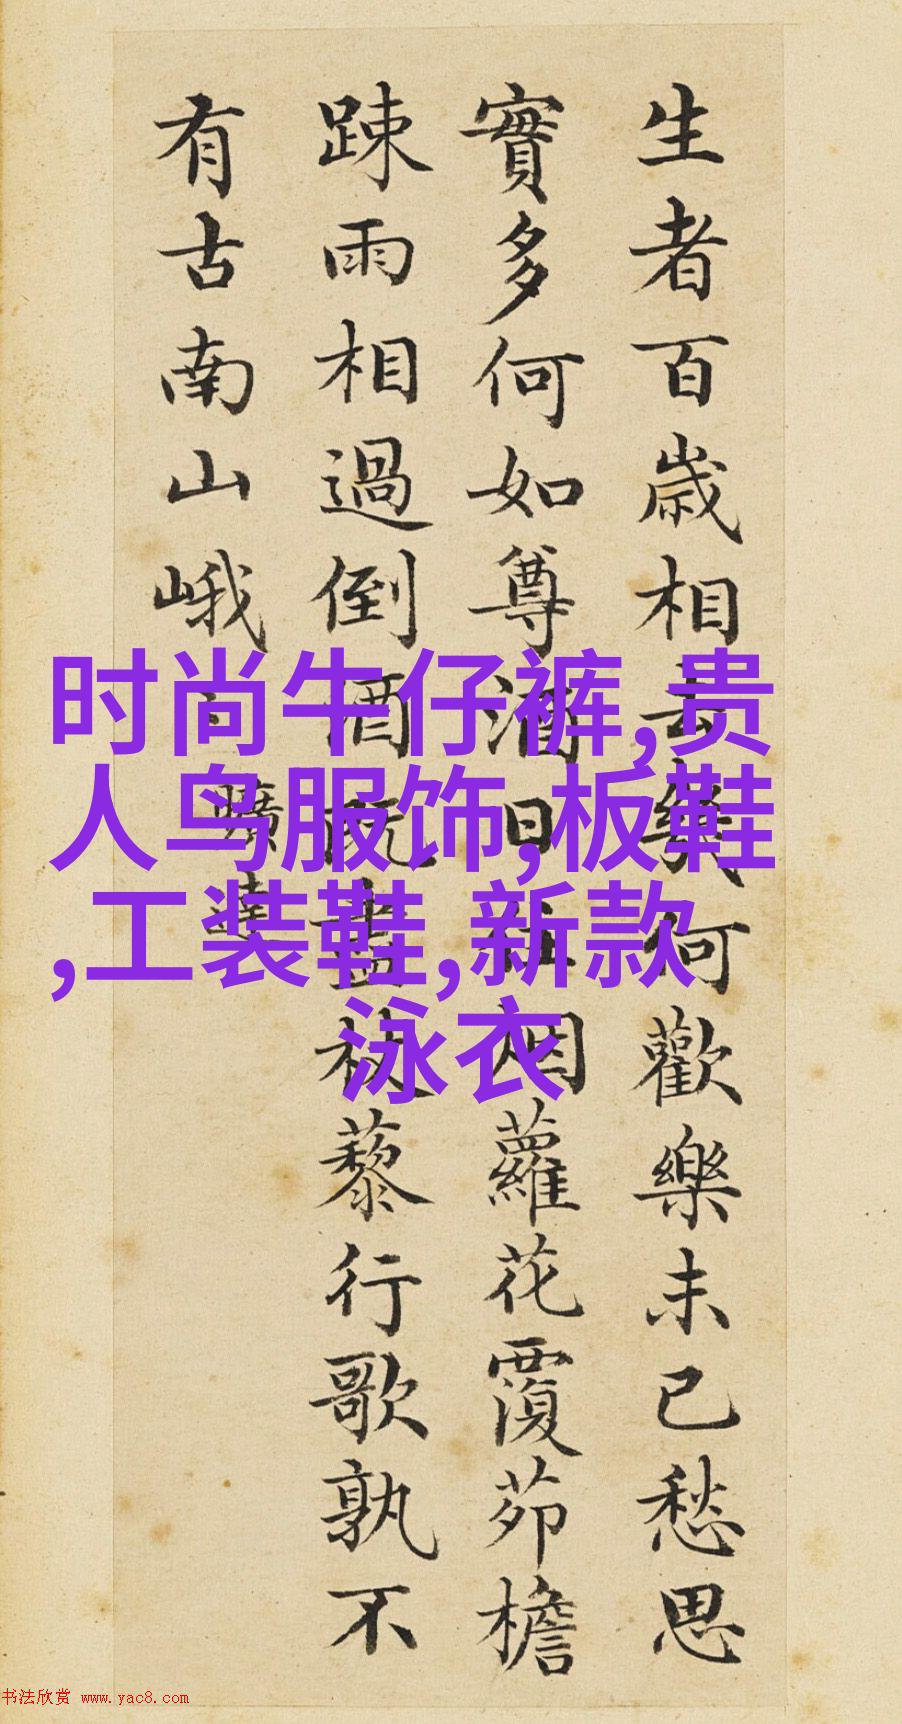 生者百歳相去幾何歡樂未已愁思
實多何如尊酒日往烟蘿花覆茆檐
踈雨相過倒酒既盡杖藜行歌孰不
有古南山峨
时尚牛仔裤,贵
人鸟服饰,板鞋
,工装鞋,新款
泳衣
书法欣赏 www.yac8.com